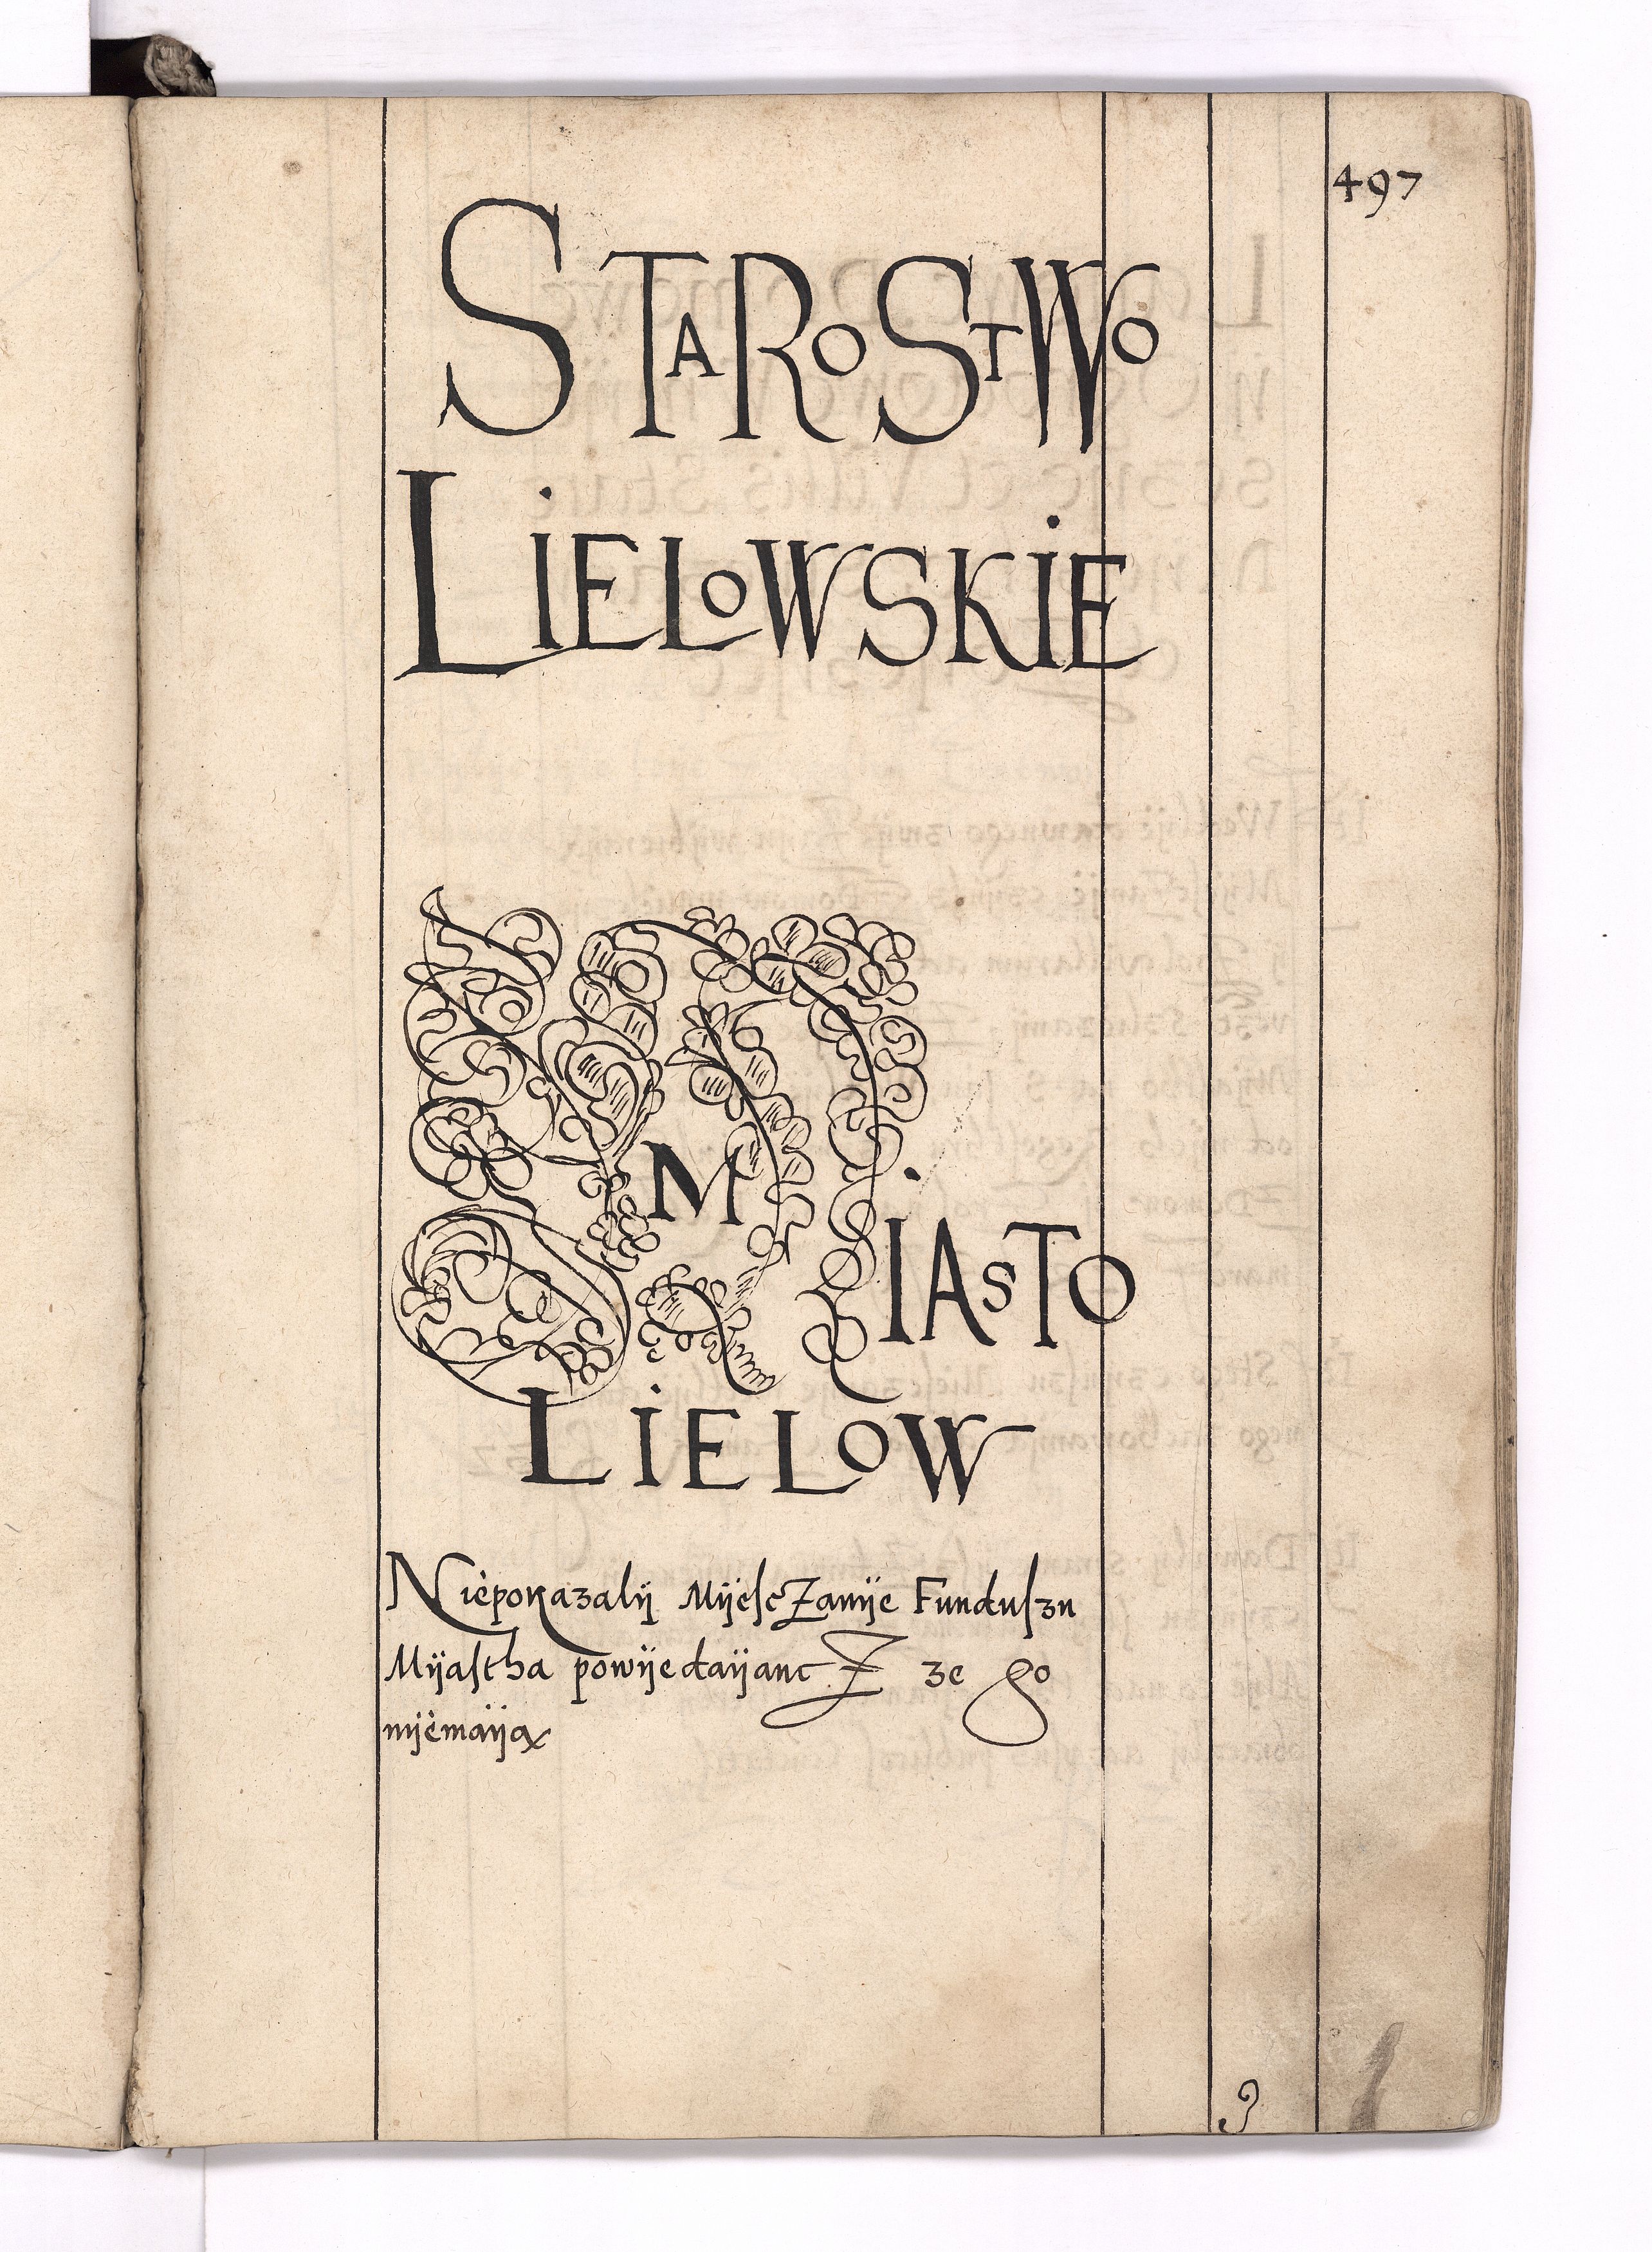 497
STAROSTWO
LIELOWSKIE
MIASTO
LIELOW
Niepokazalij Mijesczanije Funduszu
Mijastha powijedaijancz ze go
nijemaiją